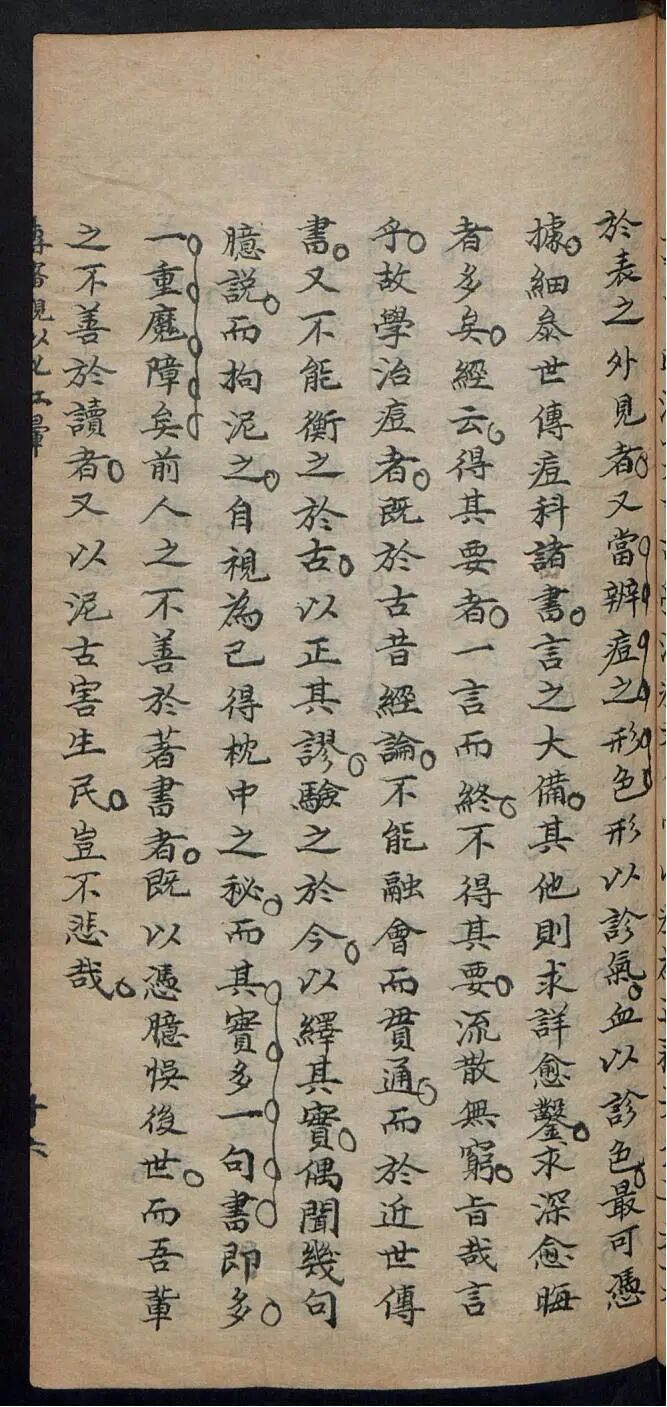 於表之外見者又當辨痘之形色形以診氣血以診色最可憑
據細叅世傳痘科諸書言之大備其他則求詳愈鑿求深愈晦
者多矣經云得其要者一言而終不得其要流散無窮旨哉言
乎故學治痘者既於古昔經論不能融會而貫通而於近世傳
書又不能衡之於古以正其謬驗之於今以繹其實偶聞幾句
臆説而拘泥之自視為已得枕中之秘而其實多一句書即多
一重魔障矣前人之不善於著書者既以憑臆悞後世而吾輩
之不善於讀者又以泥古害生民豈不悲哉
十六